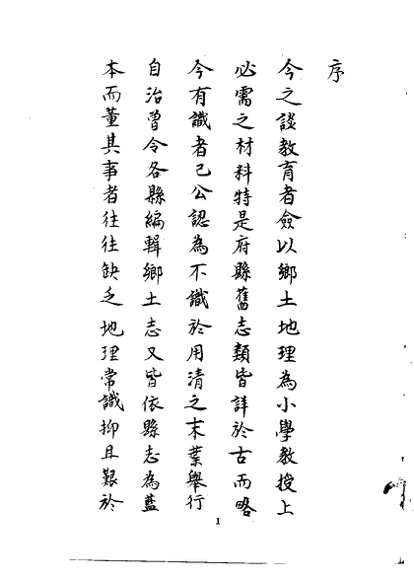 序
今之談教育者僉以鄉土地理為小學教授上
必需之材料特是府縣舊志類皆詳於古而略
今有識者已公認為不識於用清之末葉舉行
自治曾令各縣編輯鄉土志又皆依縣志為藍
本而董其事者往往缺乏地理常識抑且艱於
1